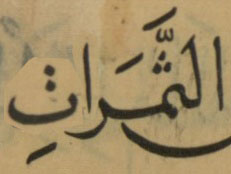 الثَّمَرَاتِ